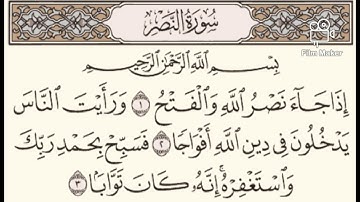 سُورَةُ النَّصْرِ
Film Maker
بِسْمِ اللَّهِ الرَّحْمَٰنِ الرَّحِيمِ
إِذَا جَآءَ نَصْرُ اللَّهِ وَالْفَتْحُ ١ وَرَأَيْتَ النَّاسَ
يَدْخُلُونَ فِى دِينِ اللَّهِ أَفْوَاجًا ٢ فَسَبِّحْ بِحَمْدِ رَبِّكَ
وَاسْتَغْفِرْهُ ۚ إِنَّهُ كَانَ تَوَّابًا ٣